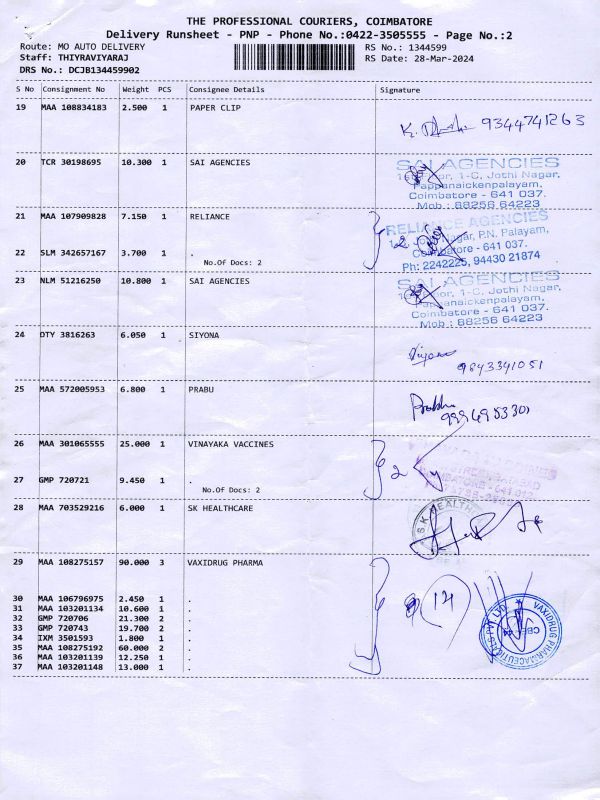 THE PROFESSIONAL COURIERS, COIMBATORE
Delivery Runsheet - PNP - Phone No.:0422-3505555 - Page No.:2
Route: MO AUTO DELIVERY RS No.: 1344599
Staff: THIYRAVIYARAJ RS Date: 28-Mar-2024
DRS No.: DCJB134459902
S No Consignment No Weight PCS Consignee Details Signature
19 MAA 108834183 2.500 1 PAPER CLIP
9344741263
20 TCR 30198695 10.300 1 SAI AGENCIES
SAI AGENCIES
1-C, Jothi Nagar,
Pappanaickenpalayam,
Coimbatore - 641 037.
Mob : 88256 64223
21 MAA 107909828 7.150 1 RELIANCE
RELIANCE AGENCIES
Nagar, P.N. Palayam,
Coimbatore - 641 037.
Ph: 2242225, 94430 21874
2
22 SLM 342657167 3.700 1 .
No.Of Docs: 2
23 NLM 51216250 10.800 1 SAI AGENCIES
SAI AGENCIES
1-C, Jothi Nagar,
Pappanaickenpalayam,
Coimbatore - 641 037.
Mob : 88256 64223
24 DTY 3816263 6.050 1 SIYONA
Siyona
9843341051
25 MAA 572005953 6.800 1 PRABU
Prabhu
9994695330
26 MAA 301065555 25.000 1 VINAYAKA VACCINES
2
27 GMP 720721 9.450 1 .
No.Of Docs: 2
28 MAA 703529216 6.000 1 SK HEALTHCARE
S K HEALTH
29 MAA 108275157 90.000 3 VAXIDRUG PHARMA
30 MAA 106796975 2.450 1 .
31 MAA 103201134 10.600 1 .
32 GMP 720706 21.300 2 .
33 GMP 720743 19.700 2 .
34 IXM 3501593 1.800 1 .
35 MAA 108275192 60.000 2 .
36 MAA 103201139 12.250 1 .
37 MAA 103201148 13.000 1 .
14
VAXIDRUG PHARMACEUTICALS PVT LTD
CBE